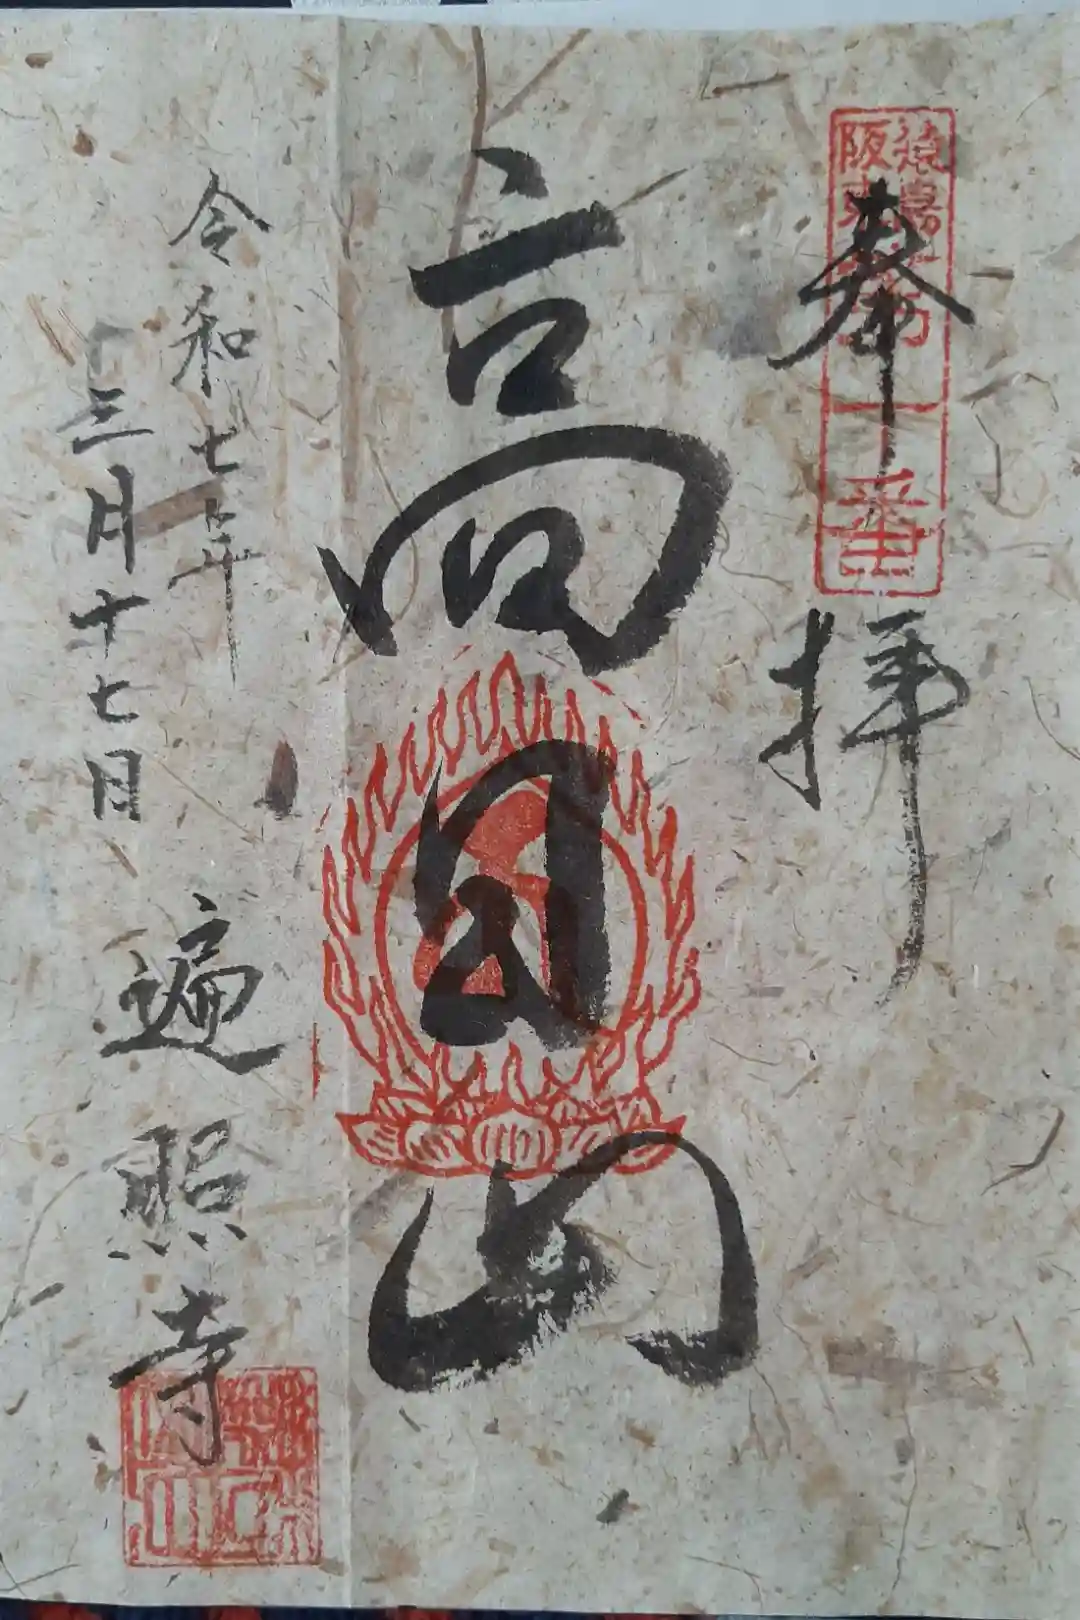 奉拝
阪東
番
高
山
令和七年
三月十七日
遍照寺